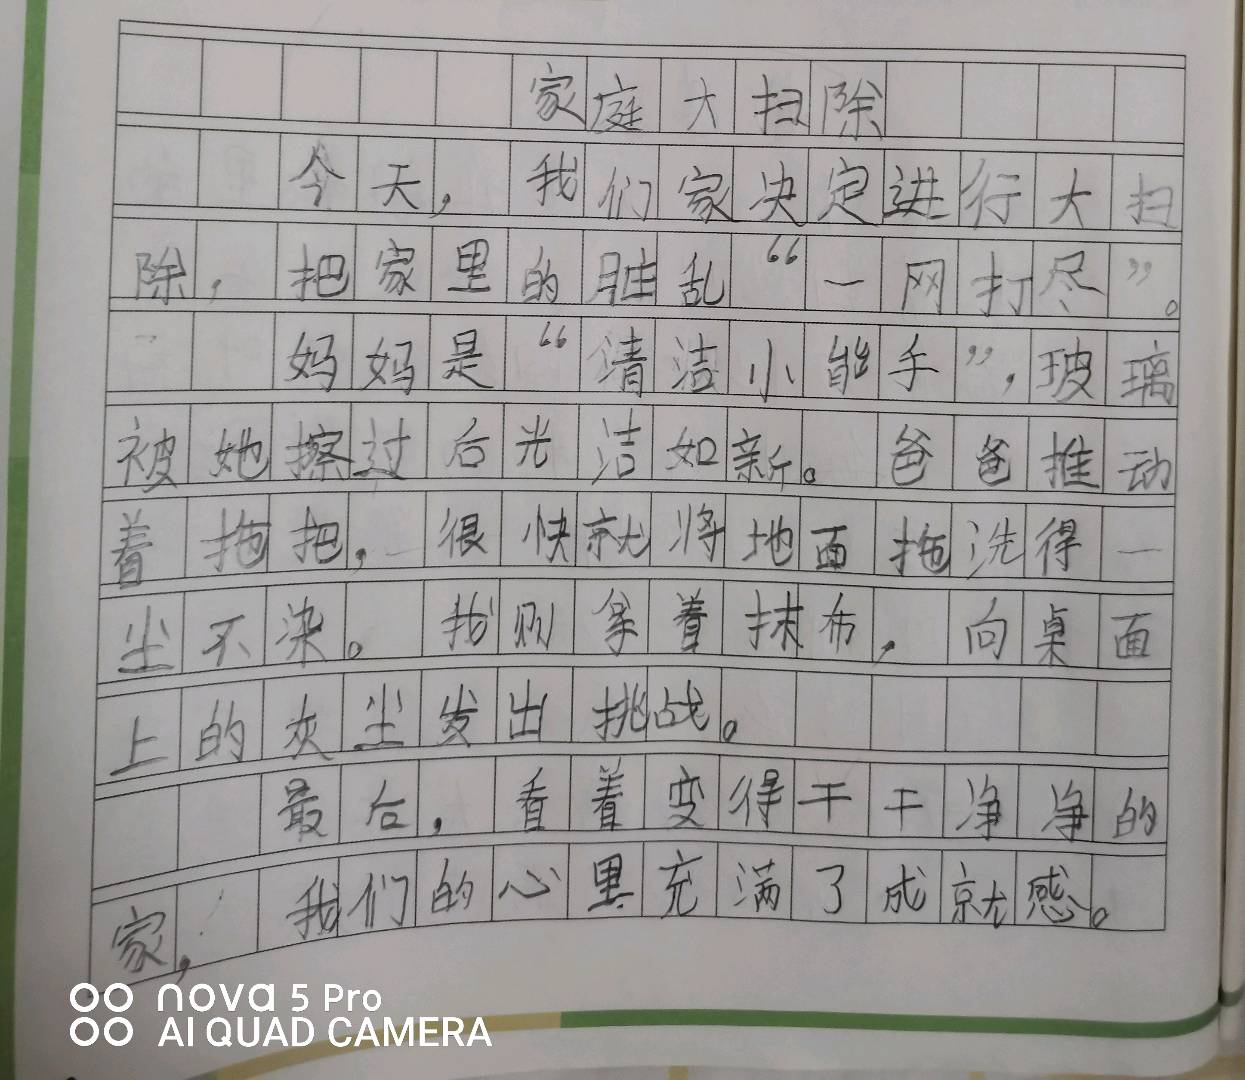 家庭大扫除
今天，我们家决定进行大扫
除，把家里的脏乱“一网打尽”。
妈妈是“清洁小能手”，玻璃
被她擦过后光洁如新。爸爸推动
着拖把，很快就将地面拖洗得一
尘不染。我则拿着抹布，向桌面
上的灰尘发出挑战。
最后，看着变得干干净净的
家，我们的心里充满了成就感。
nova 5 Pro
AI QUAD CAMERA